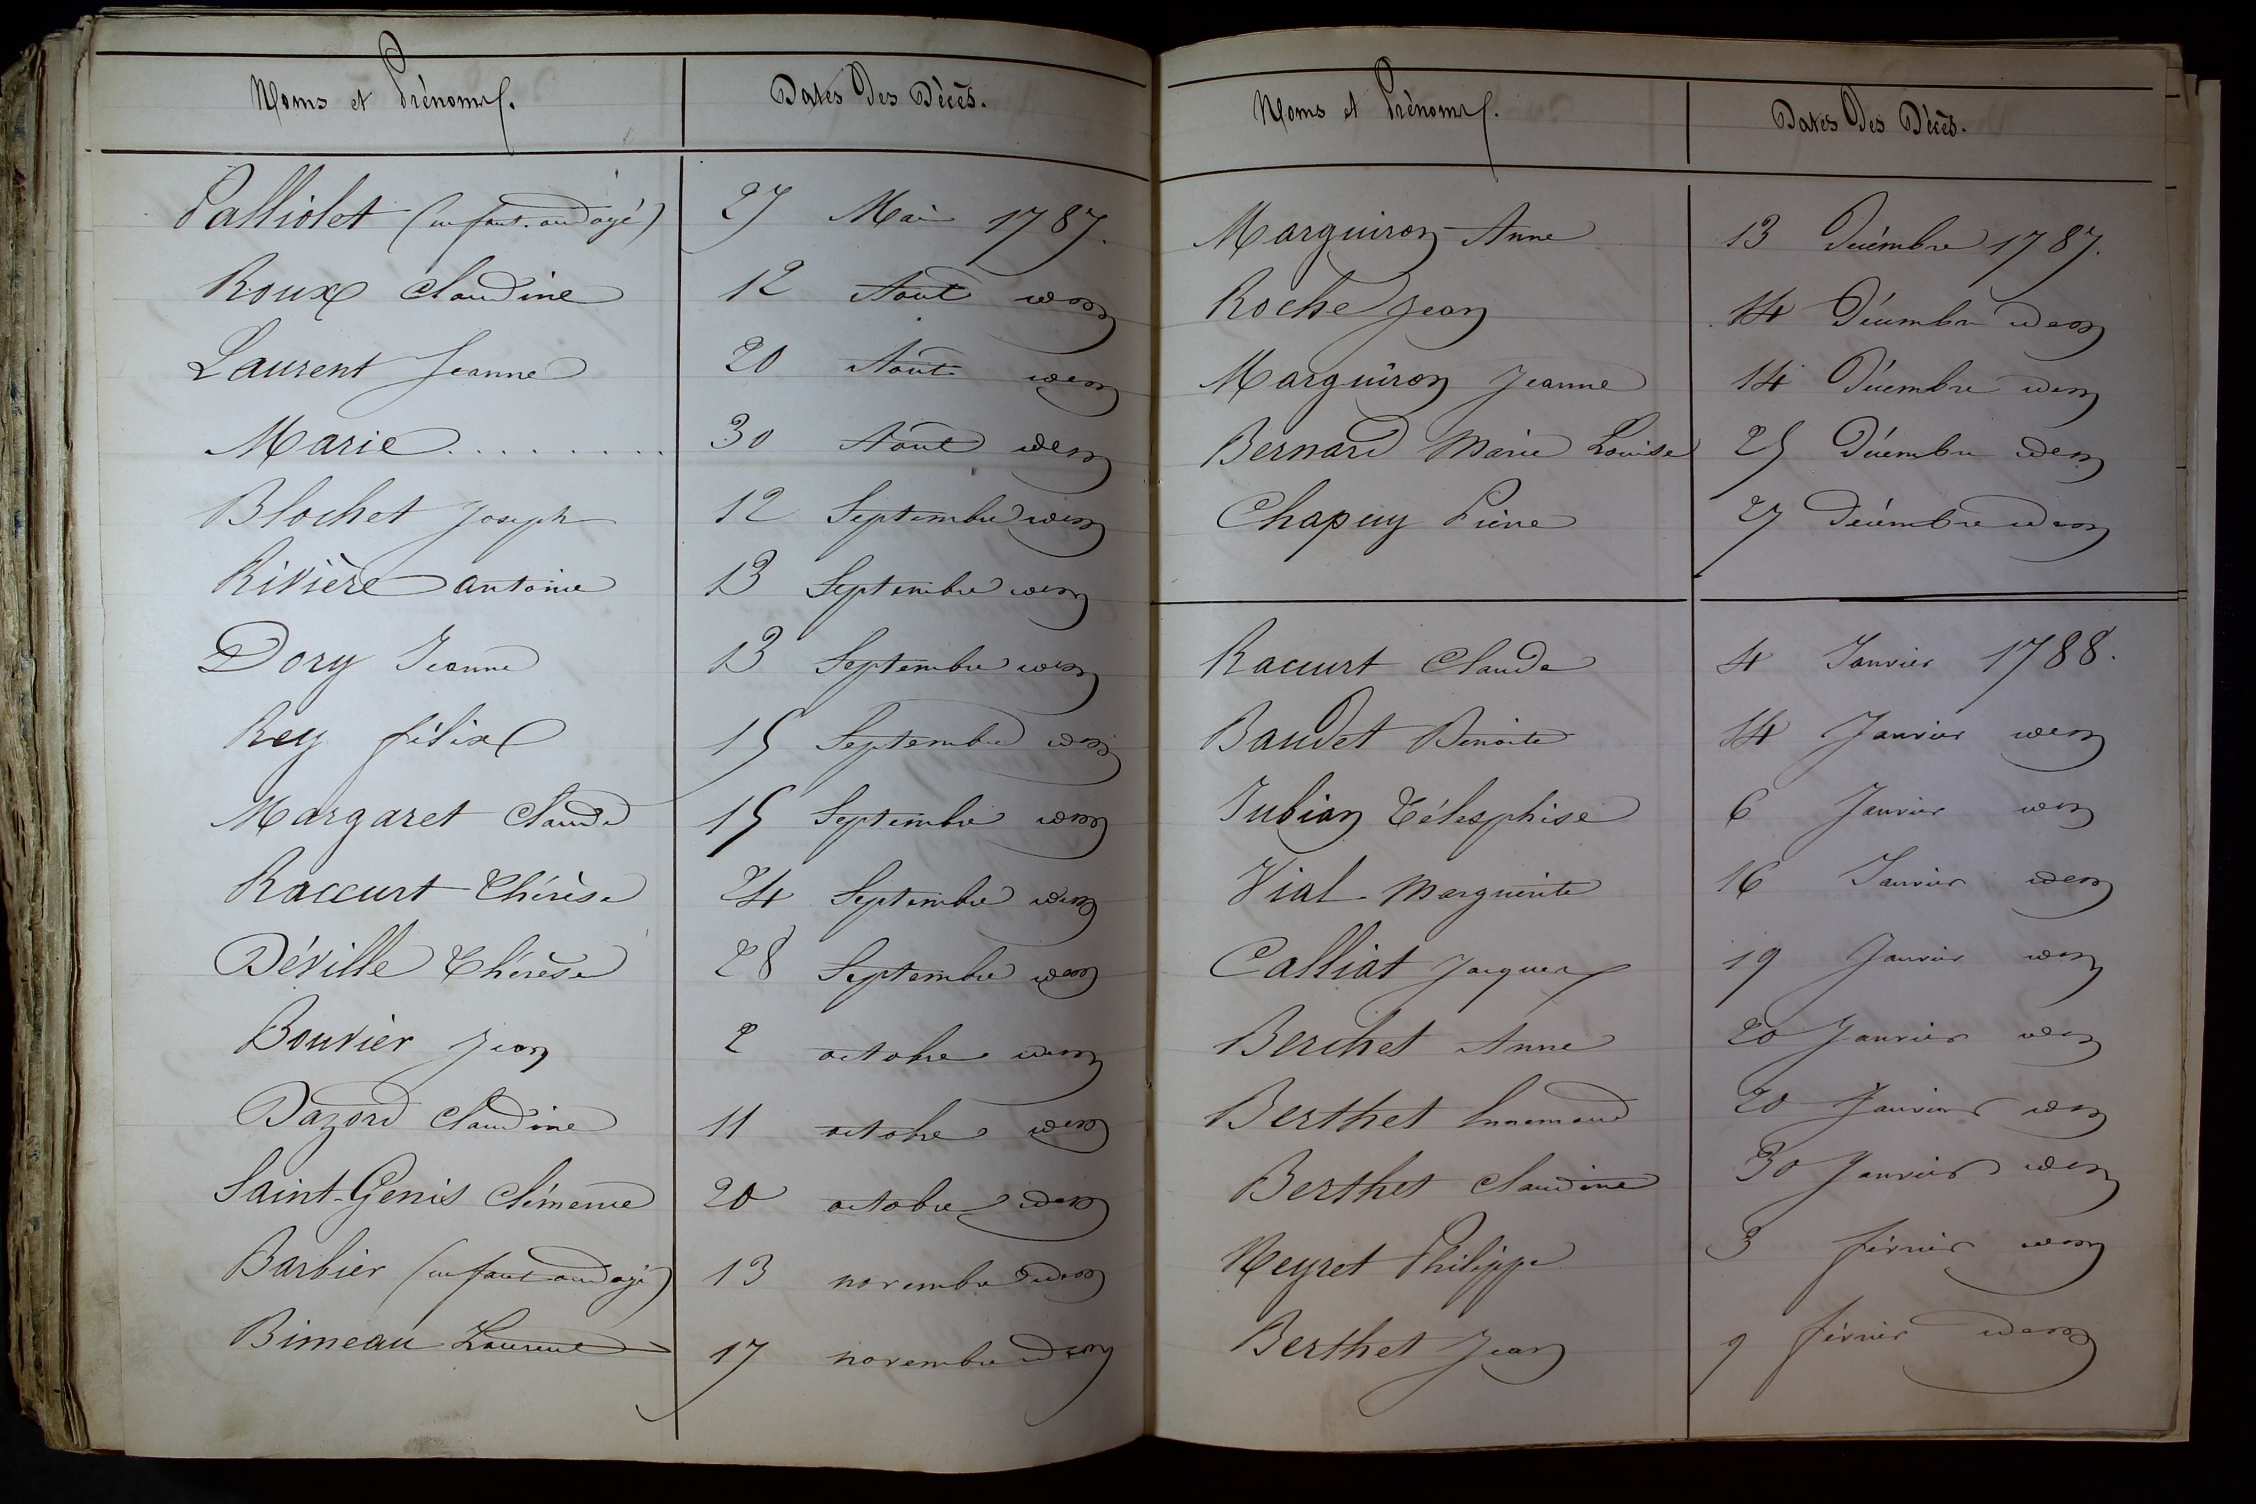 Noms et Prénoms. Dates des Décès.
Palliolet (enfant ondoyé) 27 Mai 1787.
Roux Claudine 12 Aout idem
Laurent Jeanne 20 Aout idem
Marie......... 30 Aout idem
Blochet Joseph 12 Septembre idem
Rivière antoine 13 Septembre idem
Dory Jeanne 13 Septembre idem
Rey félix 15 Septembre idem
Margaret Claude 15 Septembre idem
Raccurt Thérèse 24 Septembre idem
Déville Thérèse 28 Septembre idem
Bouvier Jean 2 octobre idem
Dazord Claudine 11 octobre idem
Saint-Genis Clémence 20 octobre idem
Barbier (enfant ondoyé) 13 novembre idem
Bimeau Laurent 17 novembre idem
Noms et Prénoms. Dates des Décès.
Marguiron Anne 13 Décembre 1787.
Roche Jean 14 Décembre idem
Marguiron Jeanne 14 Décembre idem
Bernard Marie Louise 25 Décembre idem
Chapuy Pierre 27 Décembre idem
Raccurt Claude 4 Janvier 1788.
Baudet Benoite 14 Janvier idem
Jubian Télesphise 6 Janvier idem
Vial Marguerite 16 Janvier idem
Calliat Jacques 19 Janvier idem
Berchet Anne 20 Janvier idem
Berthet Ennemond 20 Janvier idem
Berthet Claudine 30 Janvier idem
Neyret Philippe 3 février idem
Berthet Jean 9 février idem